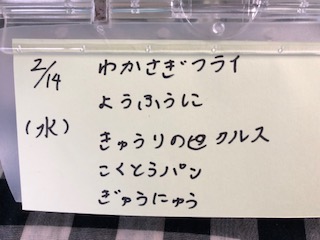 2/14 わかさぎフライ
ようふうに
(水) きゅうりのピクルス
こくとうパン
ぎゅうにゅう